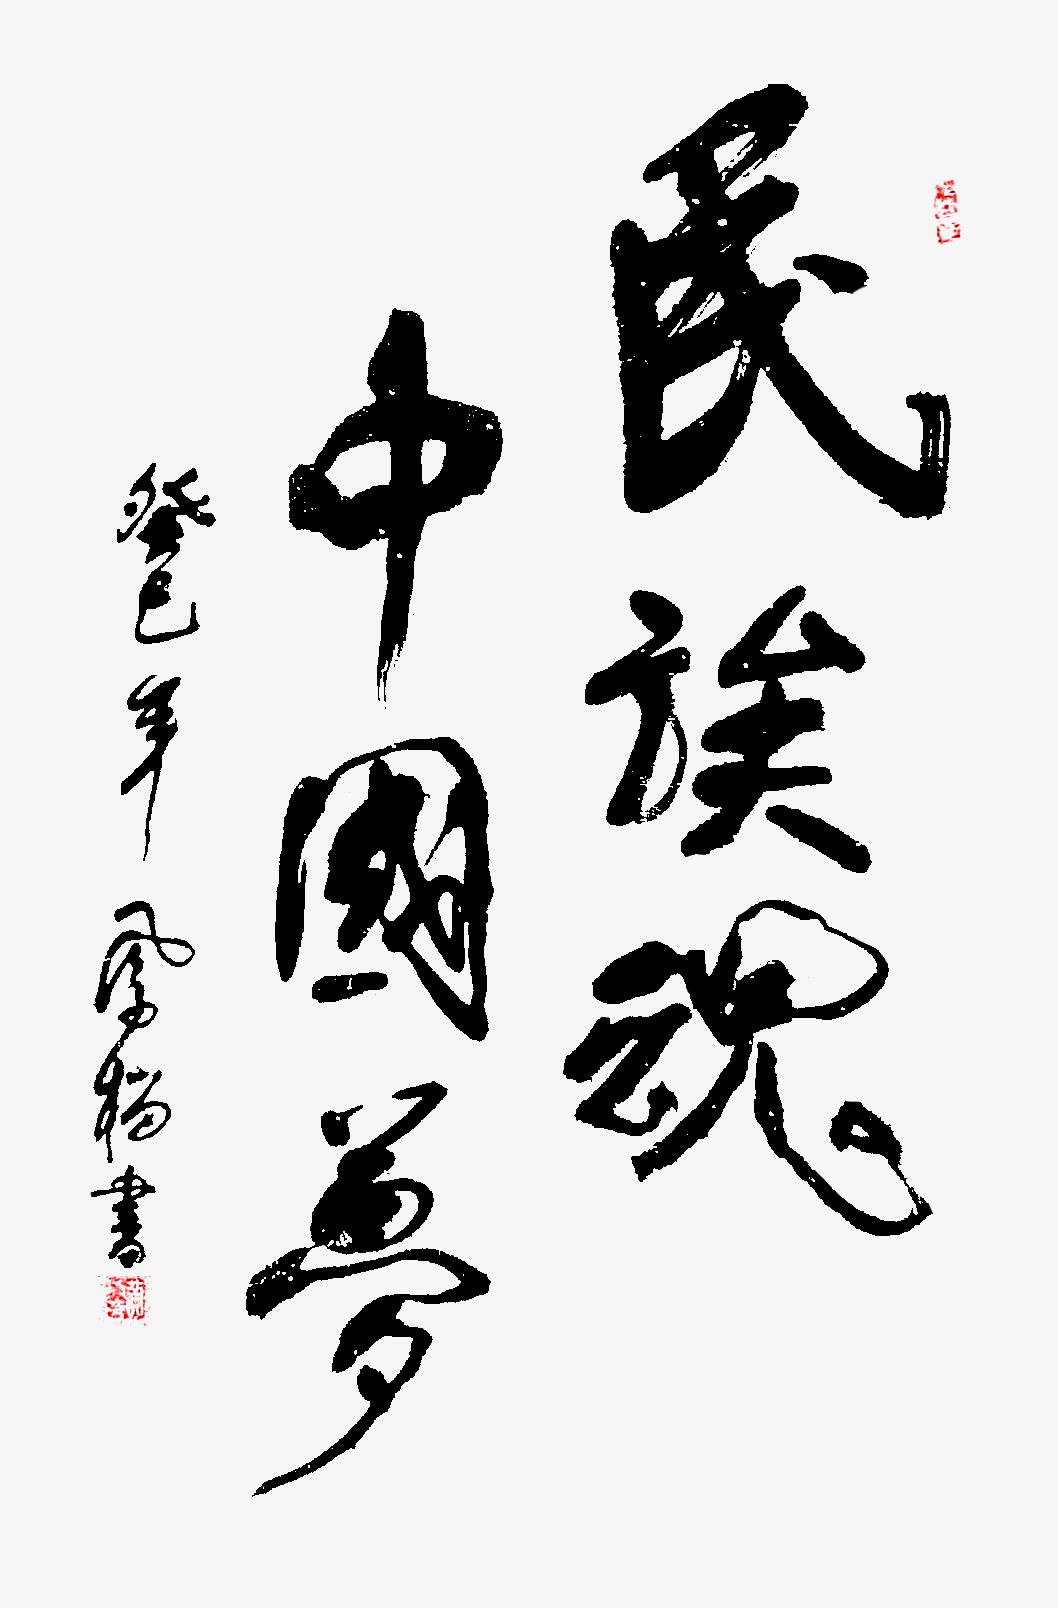 民族魂
中國夢
癸巳年鳳梅書